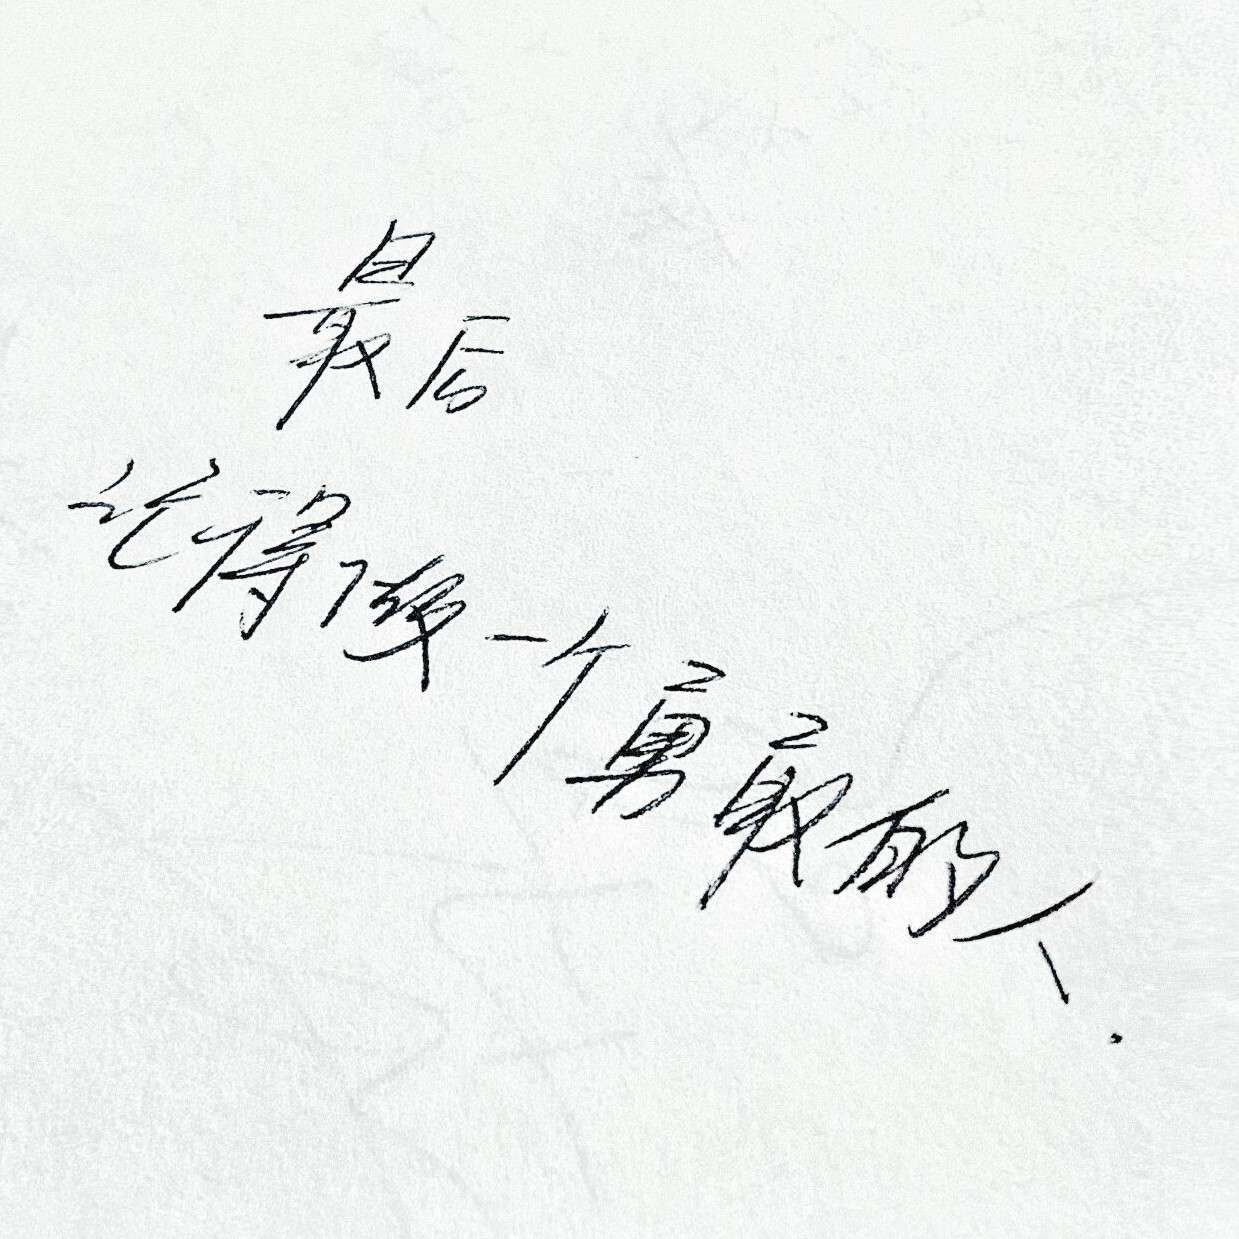 最后
记得做一个勇敢的人.